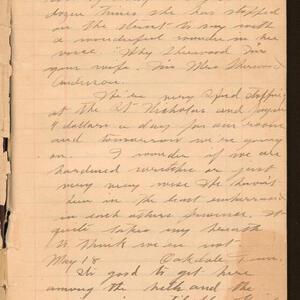 dozen times she has stopped
on the street to say with
a wonderful wonder in her
voice. "Why Sherwood I'm
your wife. I'm Mrs Sherwood
Anderson.
We're very
at the St Nicholas and paying
9 dollars a day for our room
and tomorrow we are going
on. I wonder if we are
hardened wretches or just
very very wise. We haven't
been in the least embarrassed
in each others presence. It
quite takes my breath
to think we are not.
May 18 Oakdale Tenn.
So good to get here
among the hills and the